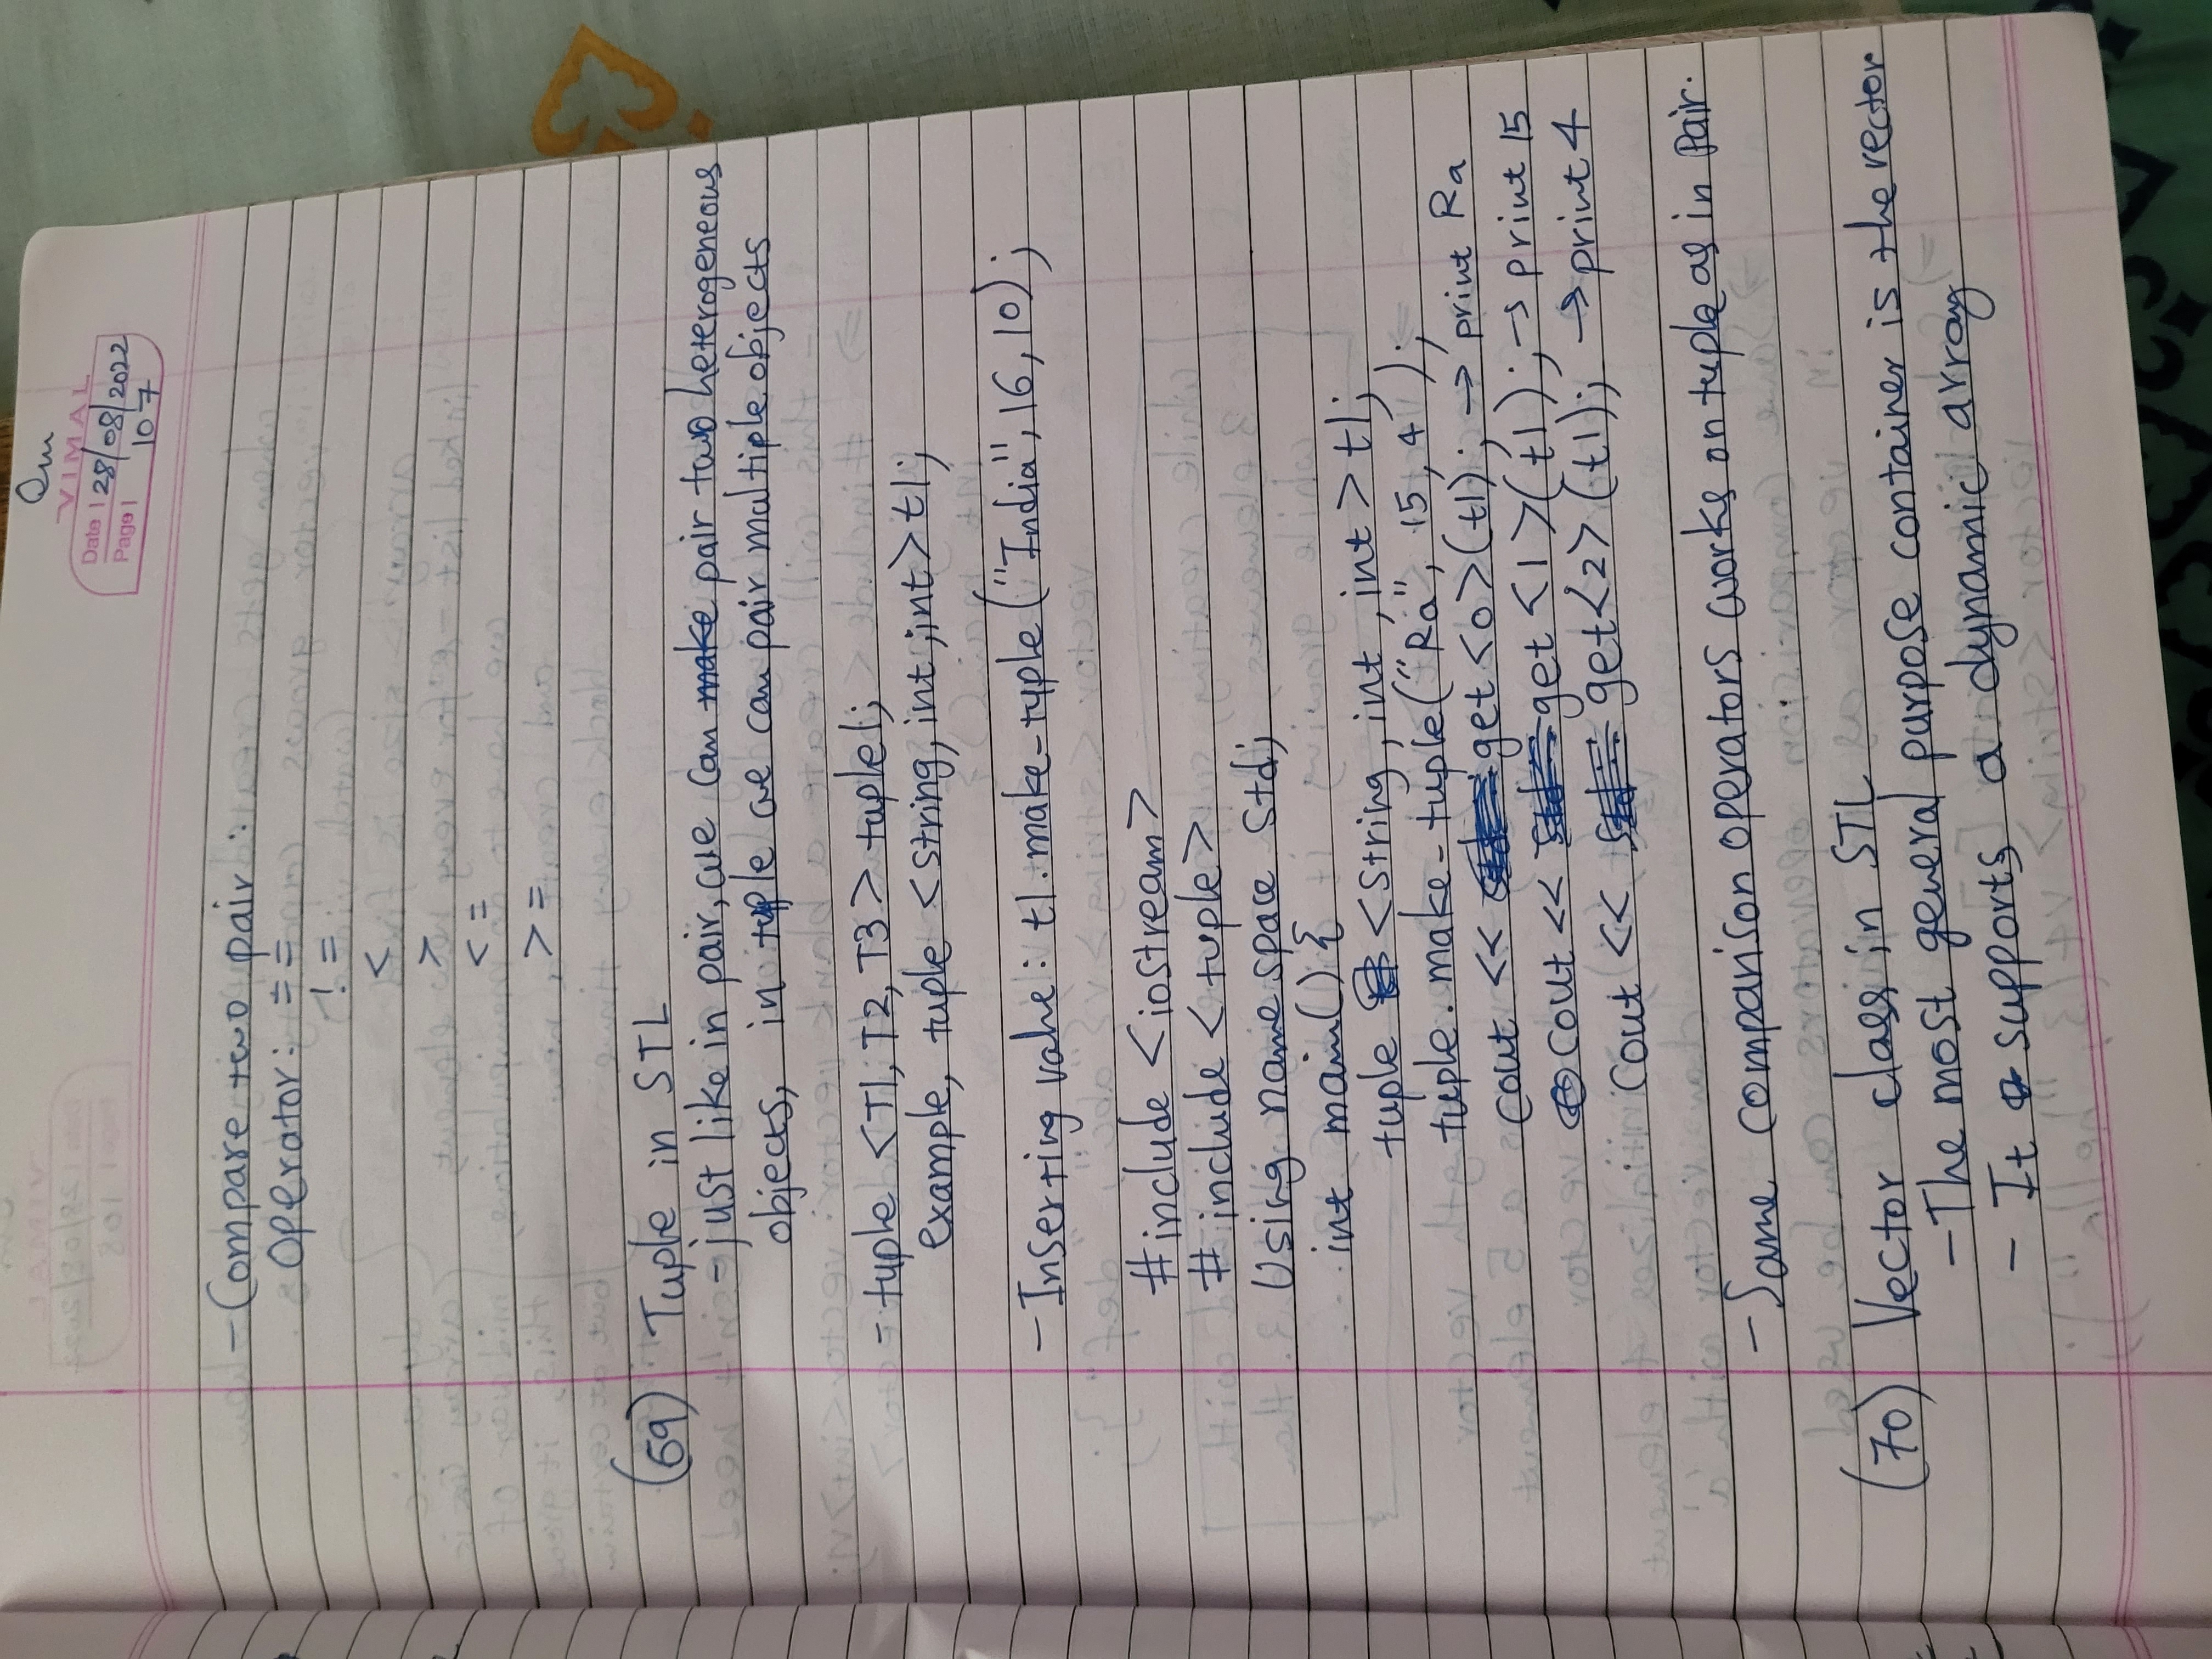 Om
VIMAL
Date | 28/08/2022
Page | 107
- Compare two pair :
Operator: ==
!=
<
>
<=
>=
(69) Tuple in STL
- just like in pair, we can make pair two heterogeneous
objects, in tuple we can pair multiple objects
- tuple <T1, T2, T3> tuple1;
example, tuple <string, int, int> t1;
- Inserting value: t1.make-typle ("India", 16, 10);
#include <iostream>
# include <tuple>
Using name space Std;
int main() {
tuple <String, int, int> t1;
tuple.make-tuple("Ra", 15, 4 );
cout << get <0>(t1); → print Ra
cout << get <1>(t1); → print 15
cout << get<2>(t1); → print 4
- Same comparison operators works on tuple as in Pair.
(70) Vector class in STL
- The most general purpose container is the vector
- It supports a dynamic array